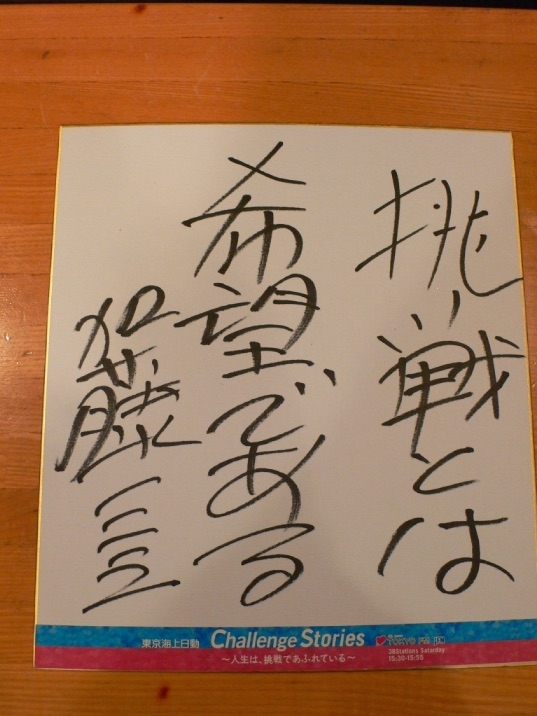 挑戦とは
希望である
加藤一二三
東京海上日動 Challenge Stories
～人生は、挑戦であふれている～
TOKYO FM
38Stations Saturday
15:30-15:55